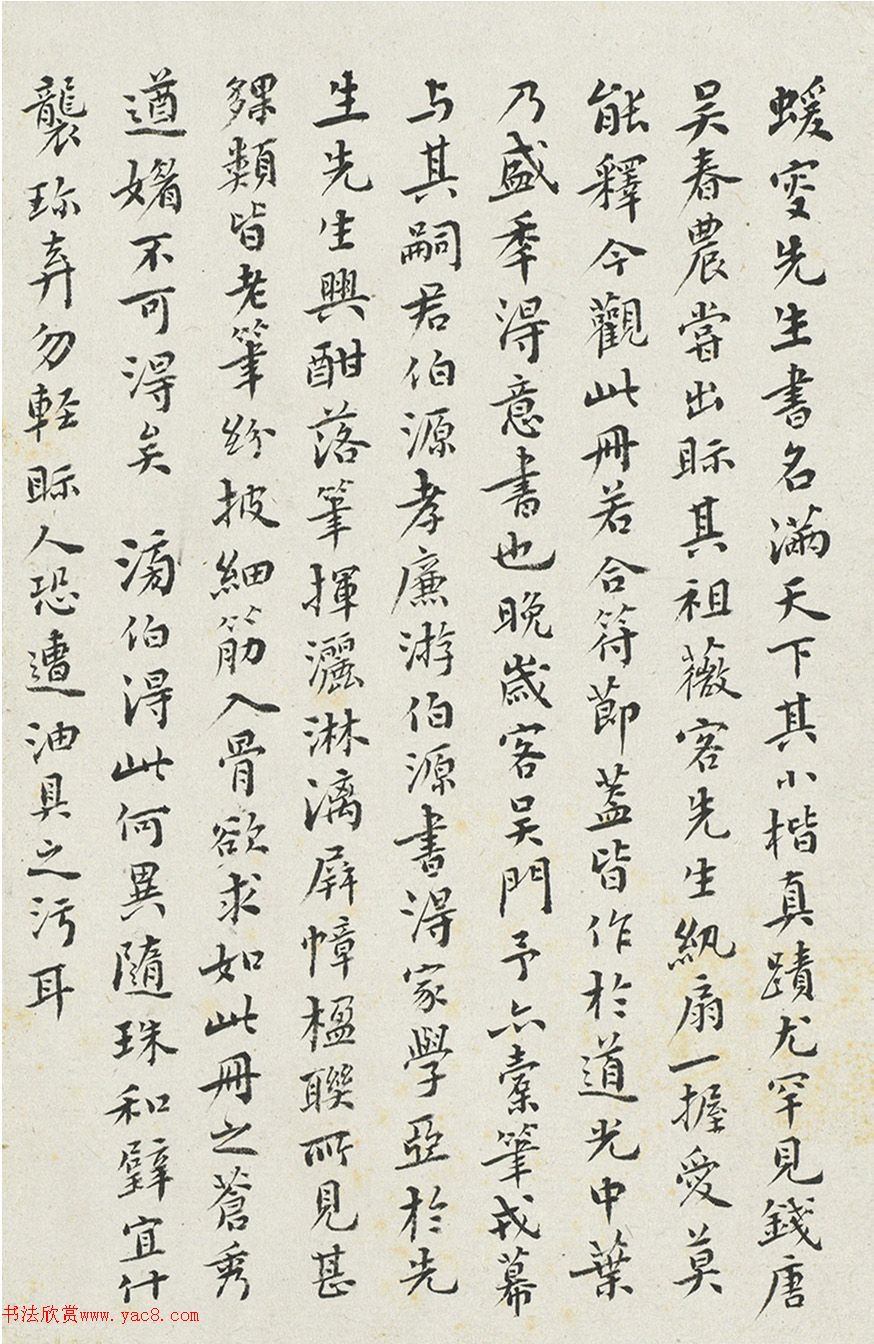 蝯叟先生書名滿天下其小楷真蹟尤罕見錢唐
吳春農嘗出眎其祖薇客先生紈扇一握愛莫
能釋今觀此冊若合符節蓋皆作於道光中葉
乃盛季得意書也晚歲客吳門予亦橐筆戎幕
与其嗣君伯源孝廉游伯源書得家學亞於先
生先生興酣落筆揮灑淋漓屏幛楹聯所見甚
夥類皆老筆紛披細筋入骨欲求如此冊之蒼秀
遒媚不可得矣 潏伯得此何異隨珠和璧宜什
襲珎弆勿輕眎人恐遭油具之污耳
书法欣赏www.yac8.com